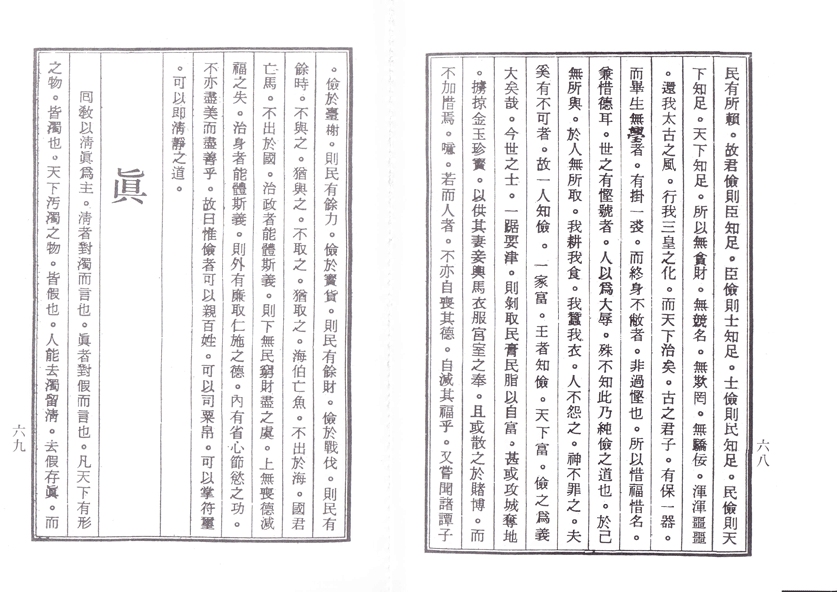 民有所賴。故君儉則臣知足。臣儉則士知足。士儉則民知足。民儉則天
下知足。天下知足。所以無貪財。無競名。無欺罔。無驕佞。渾渾噩噩
。還我太古之風。行我三皇之化。而天下治矣。古之君子。有保一器。
而畢生無璺者。有掛一裘。而終身不敝者。非過慳也。所以惜福惜名。
兼惜德耳。世之有慳號者。人以爲大辱。殊不知此乃純儉之道也。於己
無所與。於人無所取。我耕我食。我蠶我衣。人不怨之。神不罪之。夫
奚有不可者。故一人知儉。一家富。王者知儉。天下富。儉之爲義
大矣哉。今世之士。一踞要津。則剝取民膏民脂以自富。甚或攻城奪地
。擄掠金玉珍寶。以供其妻妾輿馬衣服宮室之奉。且或散之於賭博。而
不加惜焉。噫。若而人者。不亦自喪其德。自減其福乎。又嘗聞諸譚子
六八
。儉於臺榭。則民有餘力。儉於寶貨。則民有餘財。儉於戰伐。則民有
餘時。不與之。猶與之。不取之。猶取之。海伯亡魚。不出於海。國君
亡馬。不出於國。治政者能體斯義。則下無民窮財盡之虞。上無喪德減
福之失。治身者能體斯義。則外有廉取仁施之德。內有省心節慾之功。
不亦盡美而盡善乎。故曰惟儉者可以親百姓。可以司粟帛。可以掌符璽
。可以即清靜之道。
眞
回敎以清眞爲主。清者對濁而言也。眞者對假而言也。凡天下有形
之物。皆濁也。天下汚濁之物。皆假也。人能去濁留清。去假存眞。而
六九